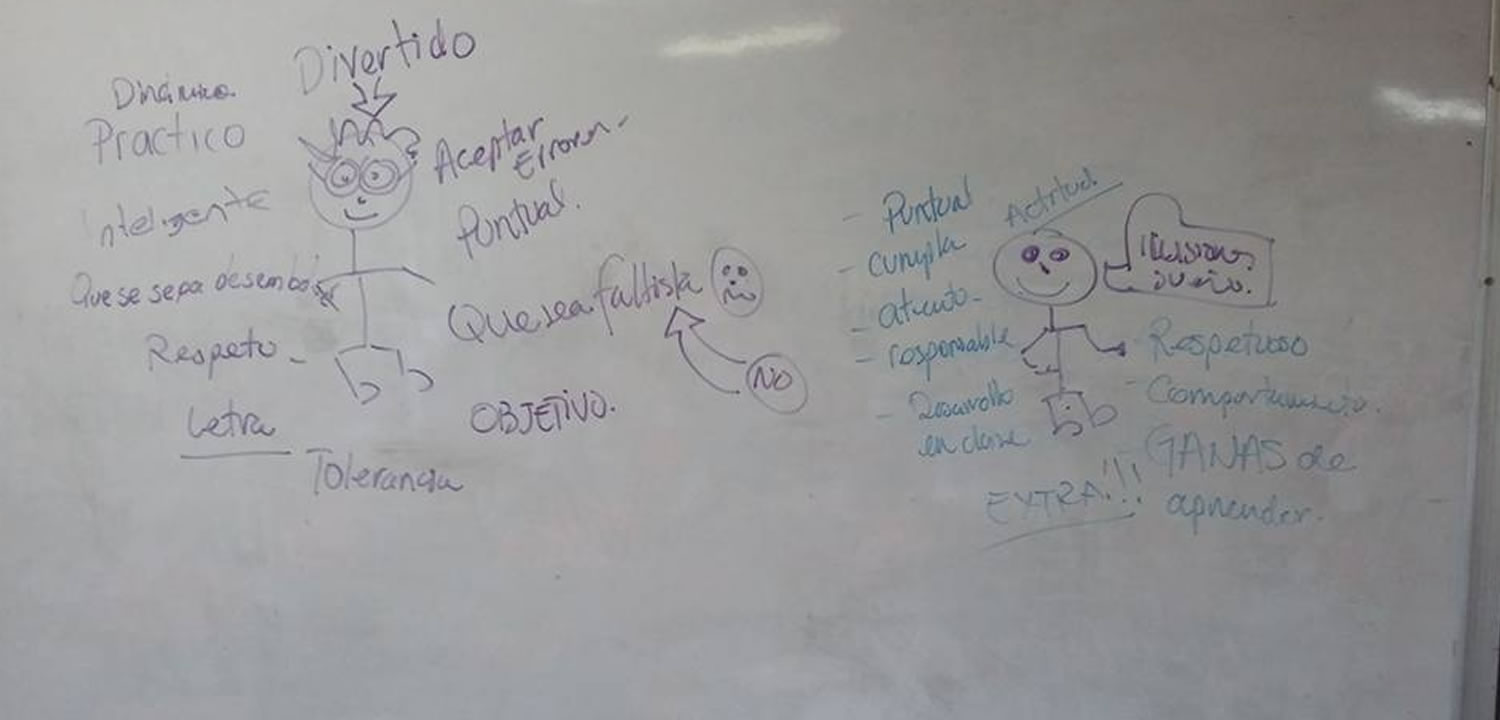 Divertido
Dinámico.
Practico
Inteligente
Que se sepa desembol
Respeto -
Letra
Tolerancia
Aceptar
Errores -
Puntual.
Que sea faltista
NO
OBJETIVO.
Actitud
- Puntual
- cumpla
- atento -
- responsable
- Desarrollo
en clase
Ilusiones
sueño.
Respetuoso
- Comportamiento.
GANAS de
aprender.
EXTRA!!!